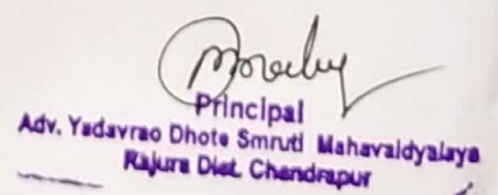 Principal
Adv. Yadavrao Dhote Smruti Mahavaidyalaya
Rajura Dist. Chandrapur